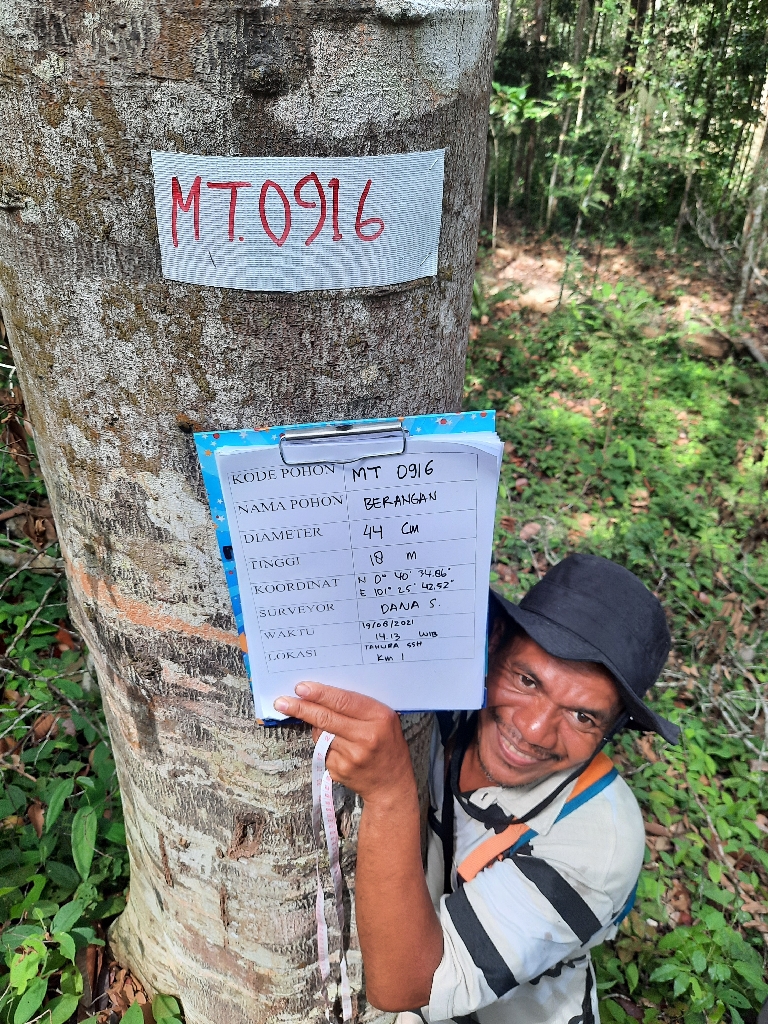 MT.0916
KODE POHON MT 0916
NAMA POHON BERANGAN
DIAMETER 44 CM
TINGGI 18 M
KOORDINAT N 0° 40' 34.86"
E 101° 25' 42.52"
SURVEYOR DANA S.
WAKTU 19/08/2021
14.13 WIB
LOKASI TAHURA SSH
KM 1